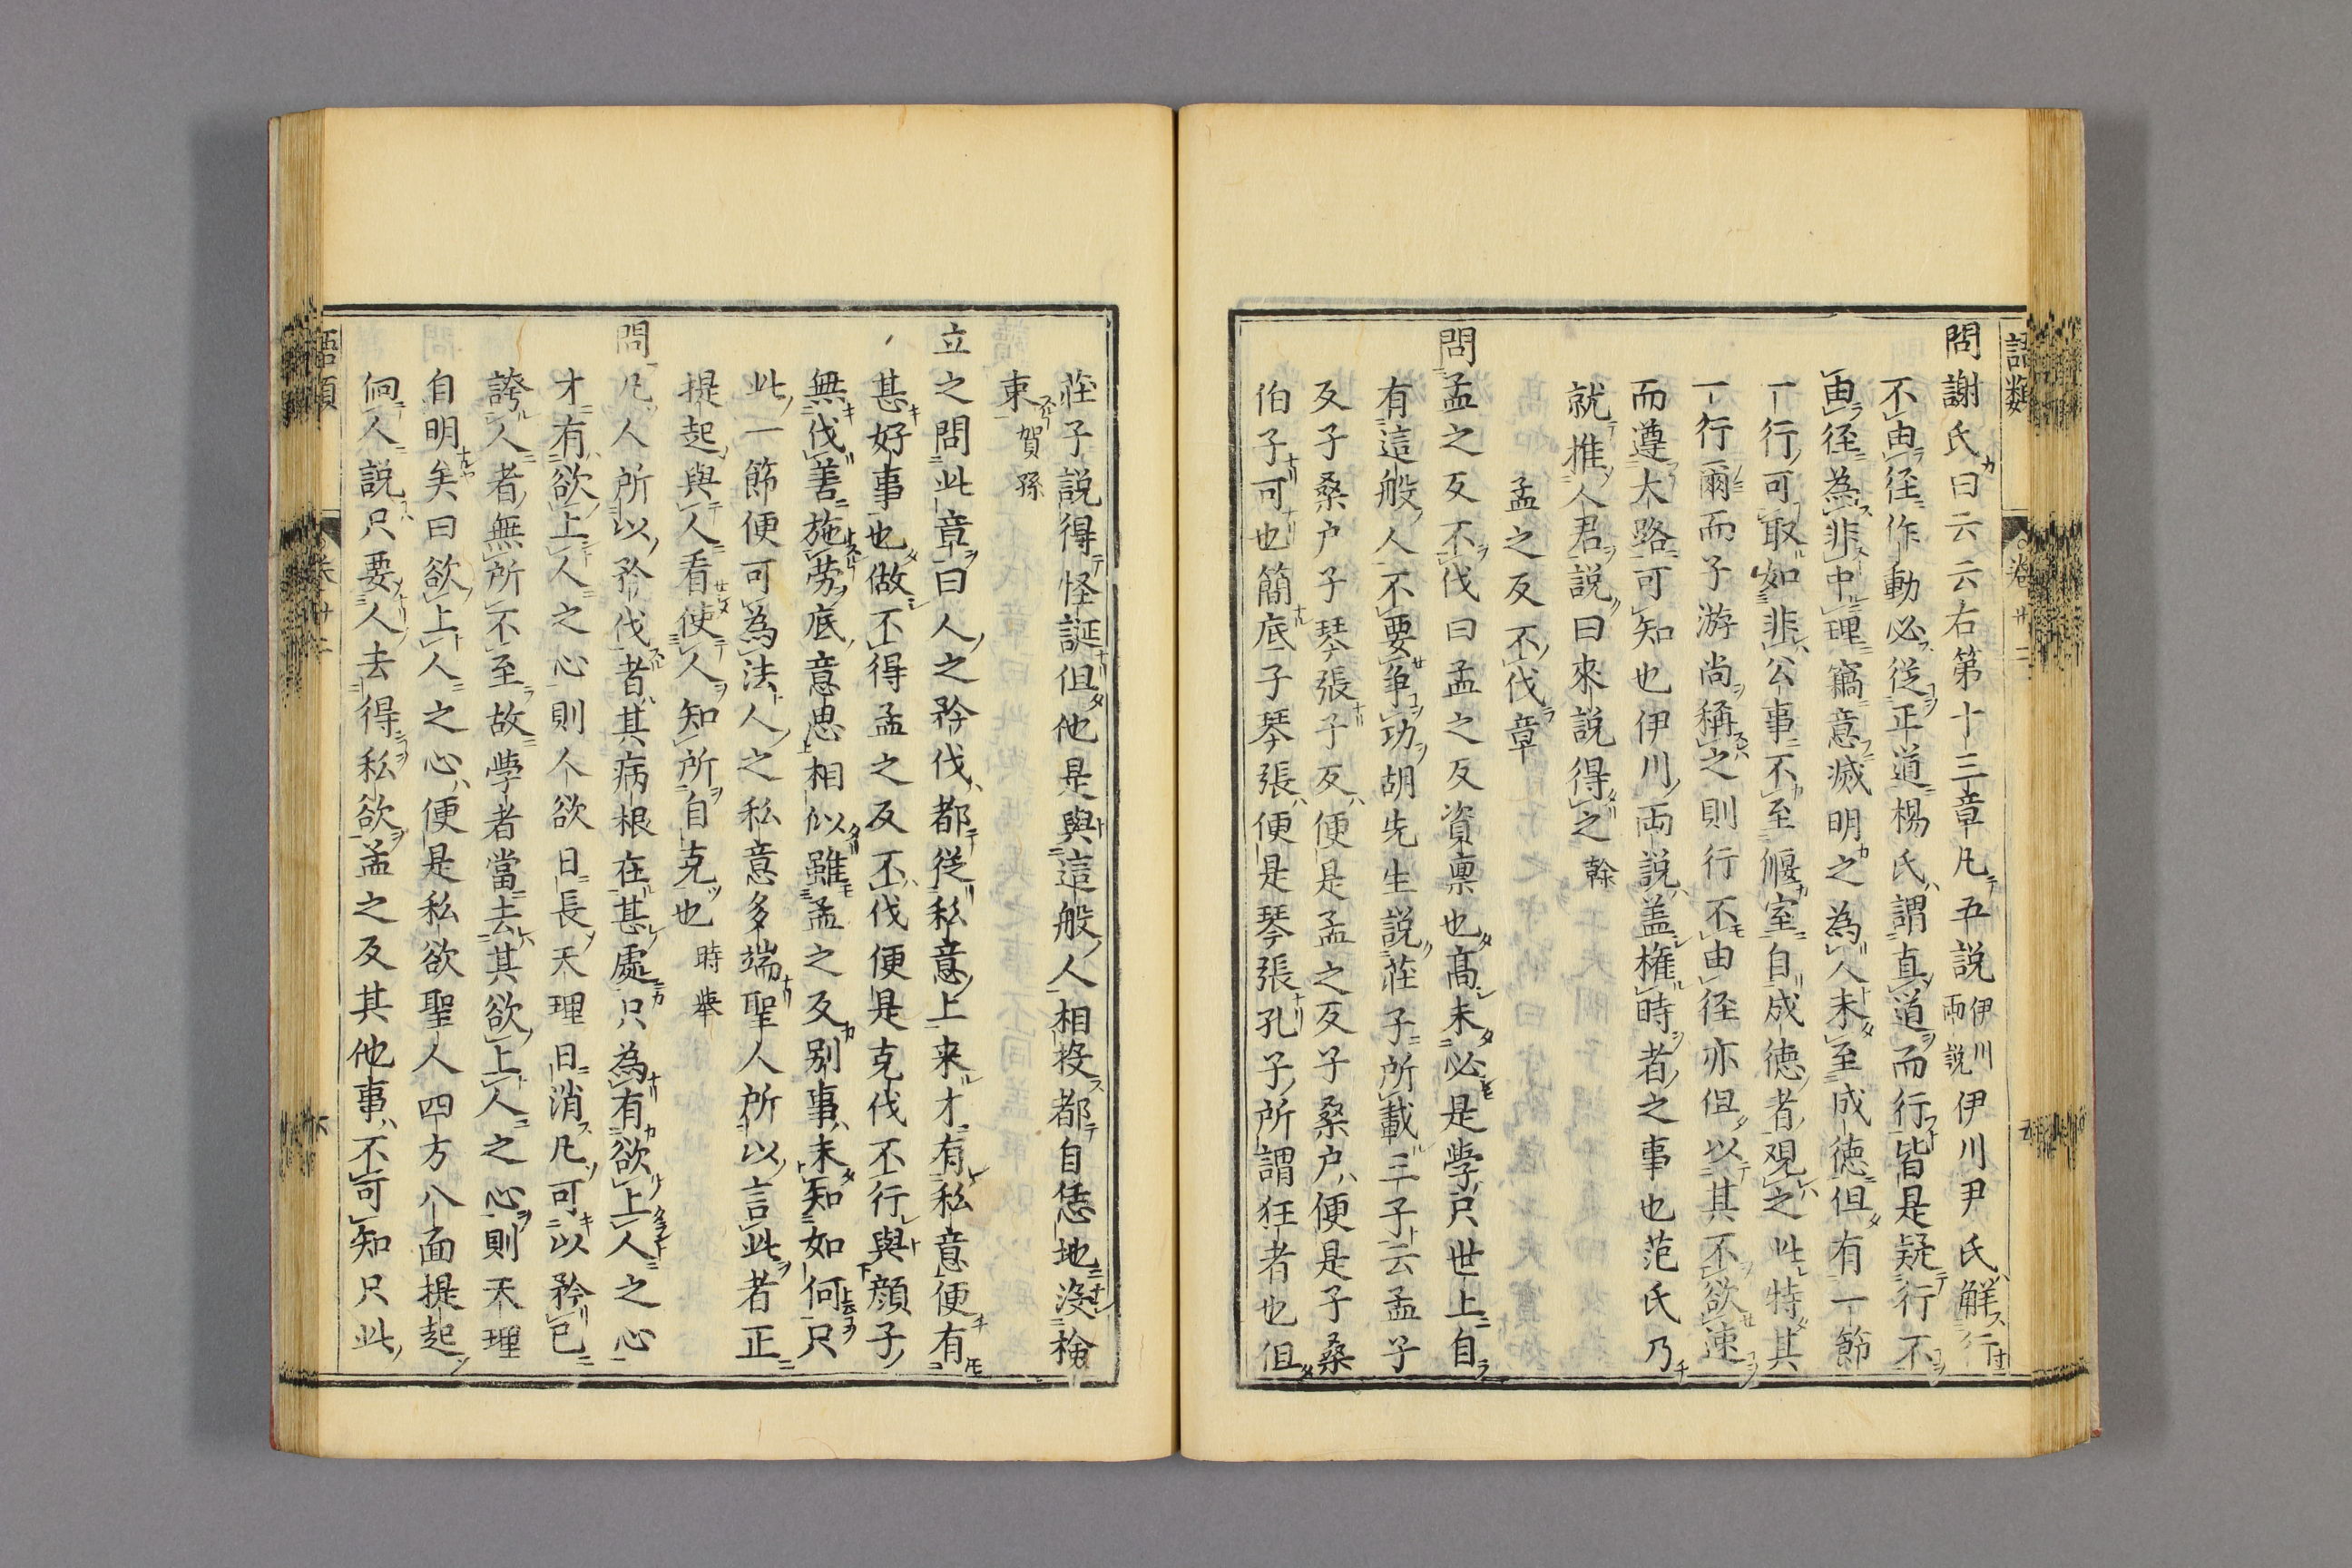 語類 卷卅二 五
問謝氏曰云云右第十三章凡五說伊川兩說伊川尹氏解行
不由徑作動必從正道楊氏謂直道而行皆是疑行不
由徑為非中理竊意滅明之為人未至成德但有一節
一行可取如非公事不至偃室自成德者觀之此特其
一行爾而子游尚稱之則行不由徑亦但以其不欲速
而遵大路可知也伊川兩說蓋權時者之事也范氏乃
就推人君說曰來說得之 榦
孟之反不伐章
問孟之反不伐曰孟之反資稟也高未必是學只世上自
有這般人不要爭功胡先生說莊子所載三子云孟子
反子桑户子琴張子反便是孟之反子桑户便是子桑
伯子可也簡底子琴張便是琴張孔子所謂狂者也但
莊子說得怪誕但他是與這般人相投都自恁地沒檢
束 賀孫
立之問此章曰人之矜伐都從私意上來才有私意便有
甚好事也做不得孟之反不伐便是克伐不行與顏子
無伐善施勞底意思相似雖孟之反別事未知如何只
此一節便可為法人之私意多端聖人所以言此者正
提起與人看使人知所自克也 時舉
問凡人所以矜伐者其病根在甚處只為有欲上人之心
才有欲上人之心則人欲日長天理日消凡可以矜已
誇人者無所不至故學者當去其欲上人之心則天理
自明矣曰欲上人之心便是私欲聖人四方八面提起
向人說只要人去得私欲孟之反其他事不可知只此
語類 卷卅二